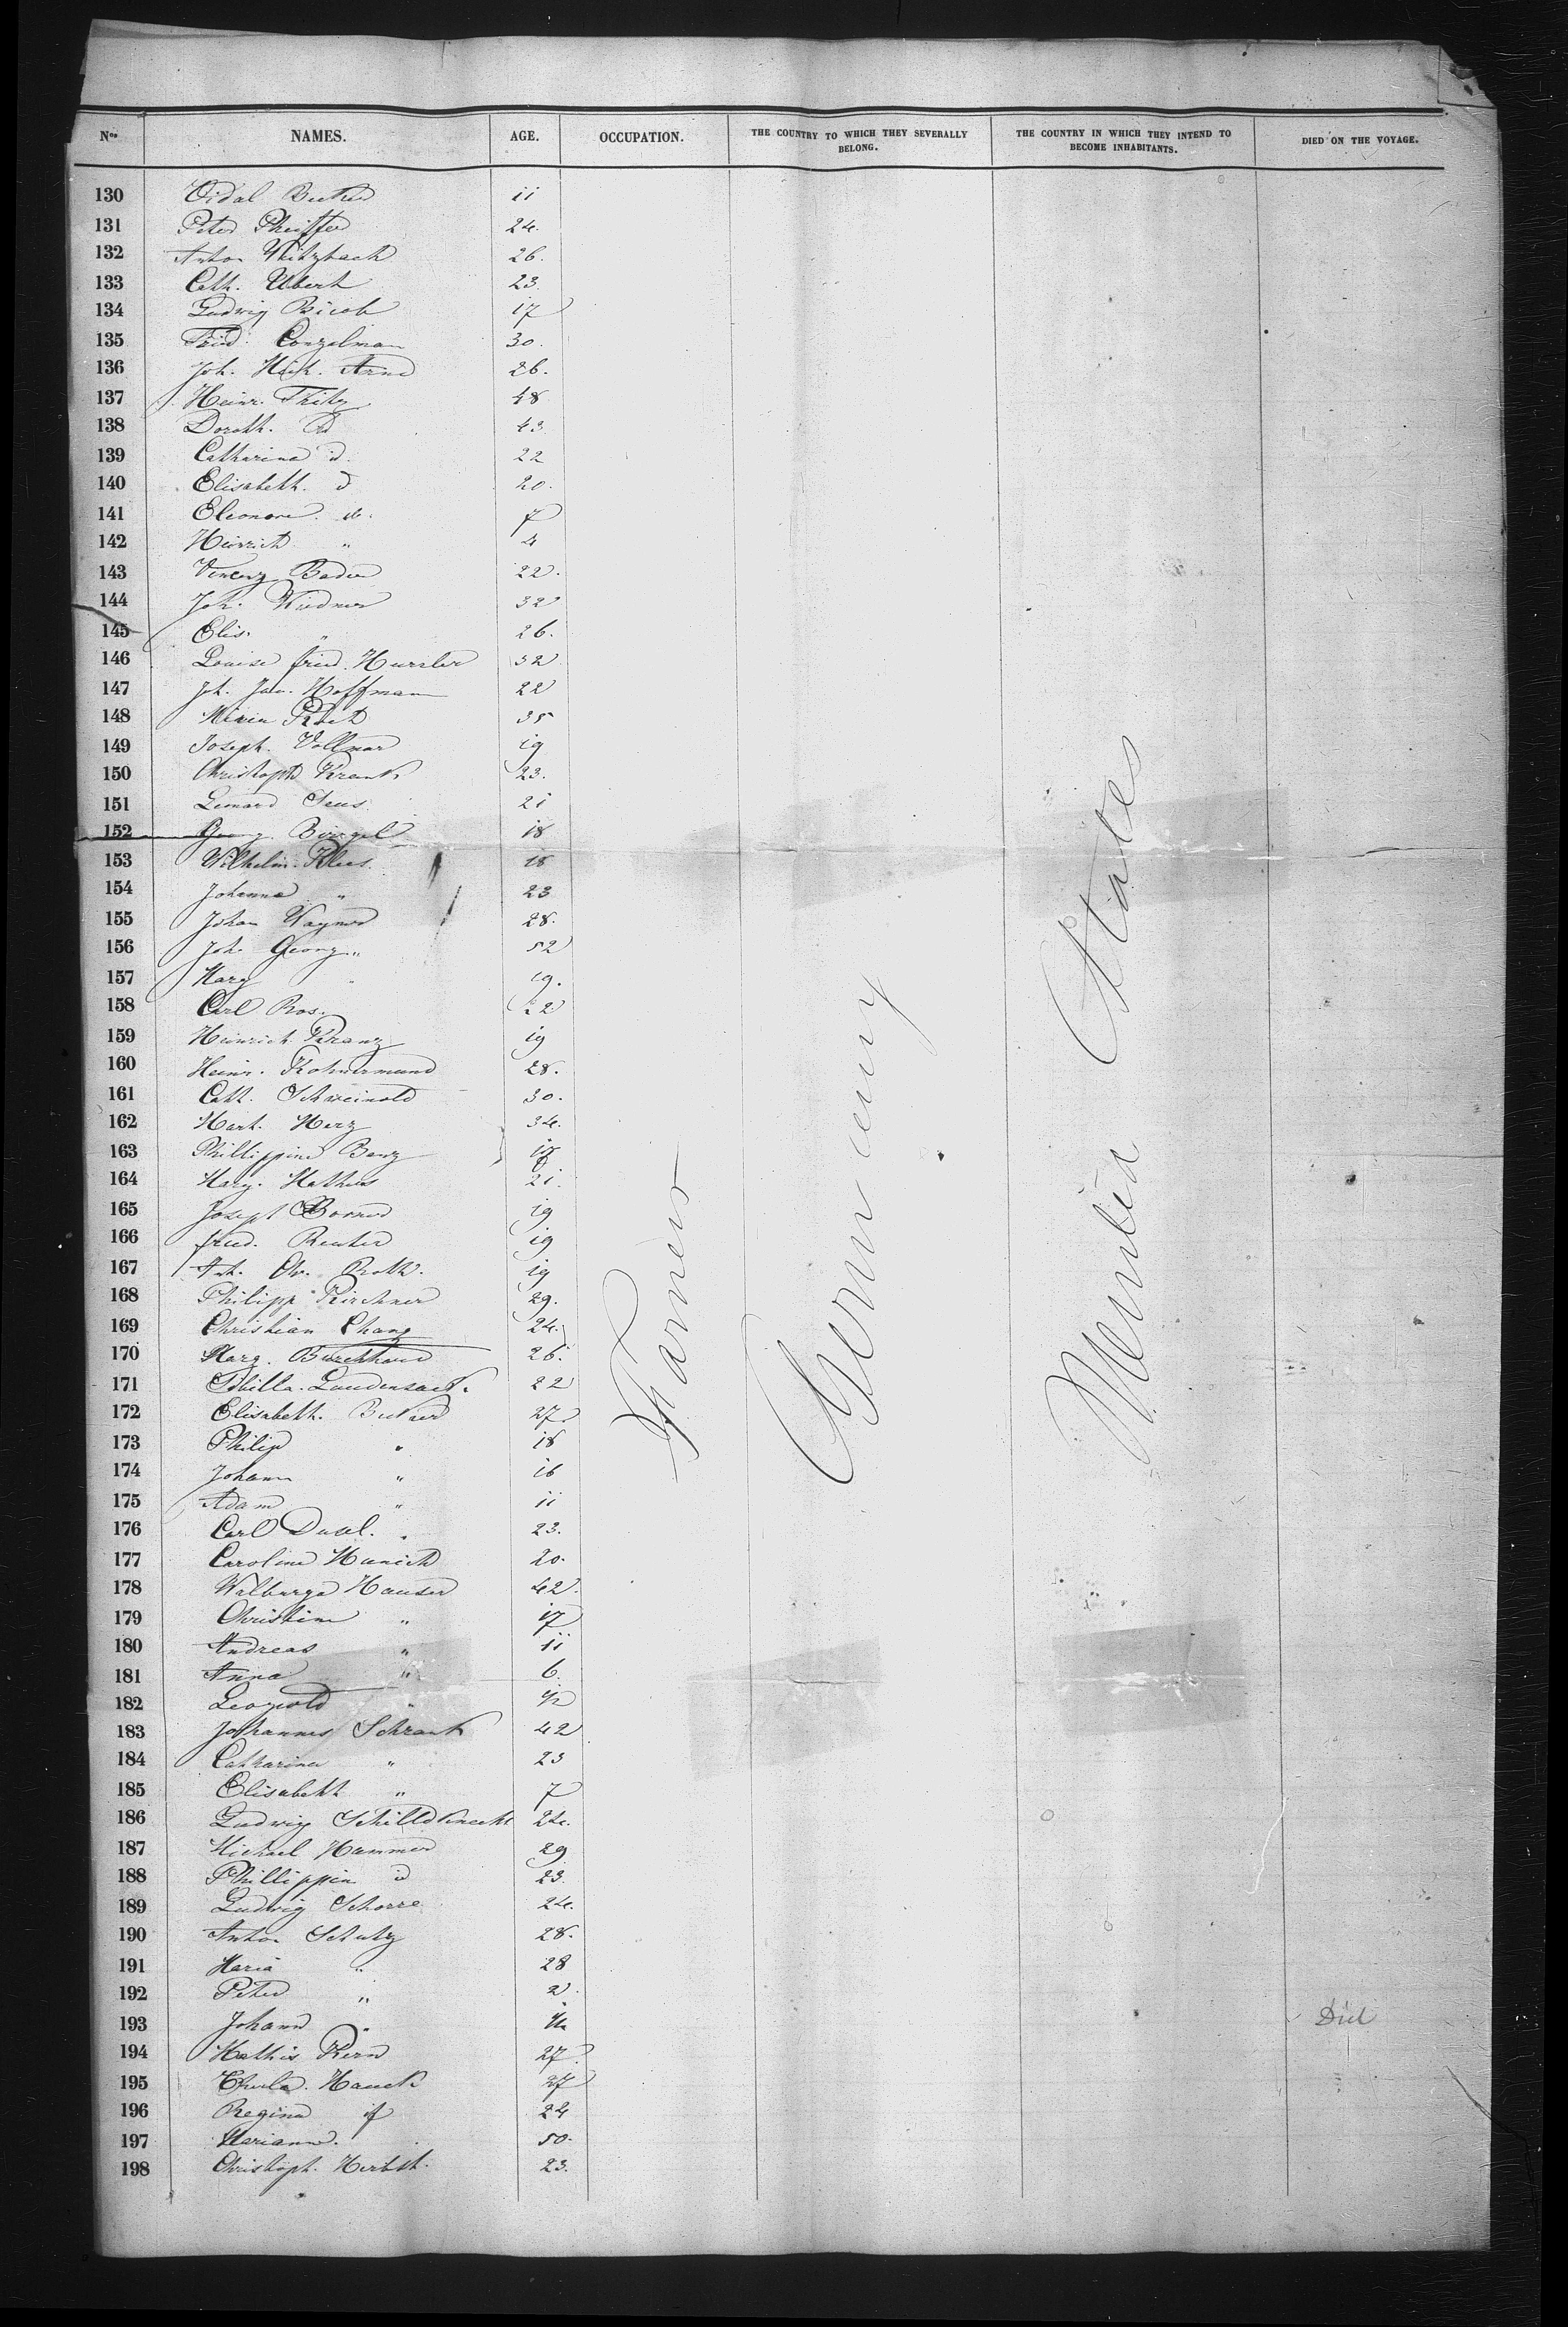 Nos NAMES. AGE. OCCUPATION. THE COUNTRY TO WHICH THEY SEVERALLY BELONG. THE COUNTRY IN WHICH THEY INTEND TO BECOME INHABITANTS. DIED ON THE VOYAGE.
130 Vidal Becker 11
131 Peter Pheiffer 24.
132 Anton 26.
133 Cath. Ubert 23.
134 Ludwig 17
135 Fried. Conzelman 30.
136 Joh. 26.
137 Heinr. 48
138 Doroth. id 43
139 Catharina id. 22
140 Elisabeth. d 20.
141 Eleonore. do. 7
142 Heinrich " 4
143 Vincenz Bader 22.
144 Joh. Widmer 32
145 Elis. " 26.
146 Louise fried. 32
147 Joh. Jac. Hoffman 22
148 Maria 35
149 Joseph. Vollmar 19
150 Christoph Krank 23.
151 Leonard 21
152 Georg 18
153 Wilhelm. Klees. 18
154 Johanna " 23
155 Johan Wagner 28.
156 Joh. Georg " 52
157 Marg " 19.
158 Carl Ros. 22
159 Heinrich Kranz 19
160 Heinr. 28.
161 Cath. Schweinold 30.
162 Mart. Merz 34.
163 Phillippine Benz 18
164 Marg. Mathes 21.
165 Joseph 19
166 fried. Reuter 19
167 Ant. Roth. 19
168 Philipp Kirchner 29.
169 Christian 24.
170 Marg. Burckhard 26.
171 Sibilla. 22
172 Elisabeth. Becker 27
173 Philip " 18
174 Johann " 16
175 Adam " 11
176 Carl 23.
177 Caroline 20.
178 Walburga Hauser 42.
179 Christine " 17
180 Andreas " 11
181 Anna " 6.
182 Leopold " 1/2
183 Johannes Schrank 42
184 Catharina " 23
185 Elisabeth " 7
186 Ludwig Schilldknecht 24.
187 Michael Hammer 29
188 Phillippin id 23.
189 Ludwig Schorre 24.
190 Anton Schutz 28.
191 Maria " 28
192 Peter " 2.
193 Johann " Died
194 Mathis Kern 27.
195 Hauck 27
196 Regina 24
197 Mariann. 50.
198 Christoph. Herbst. 23.
Farmers
Germany
United States